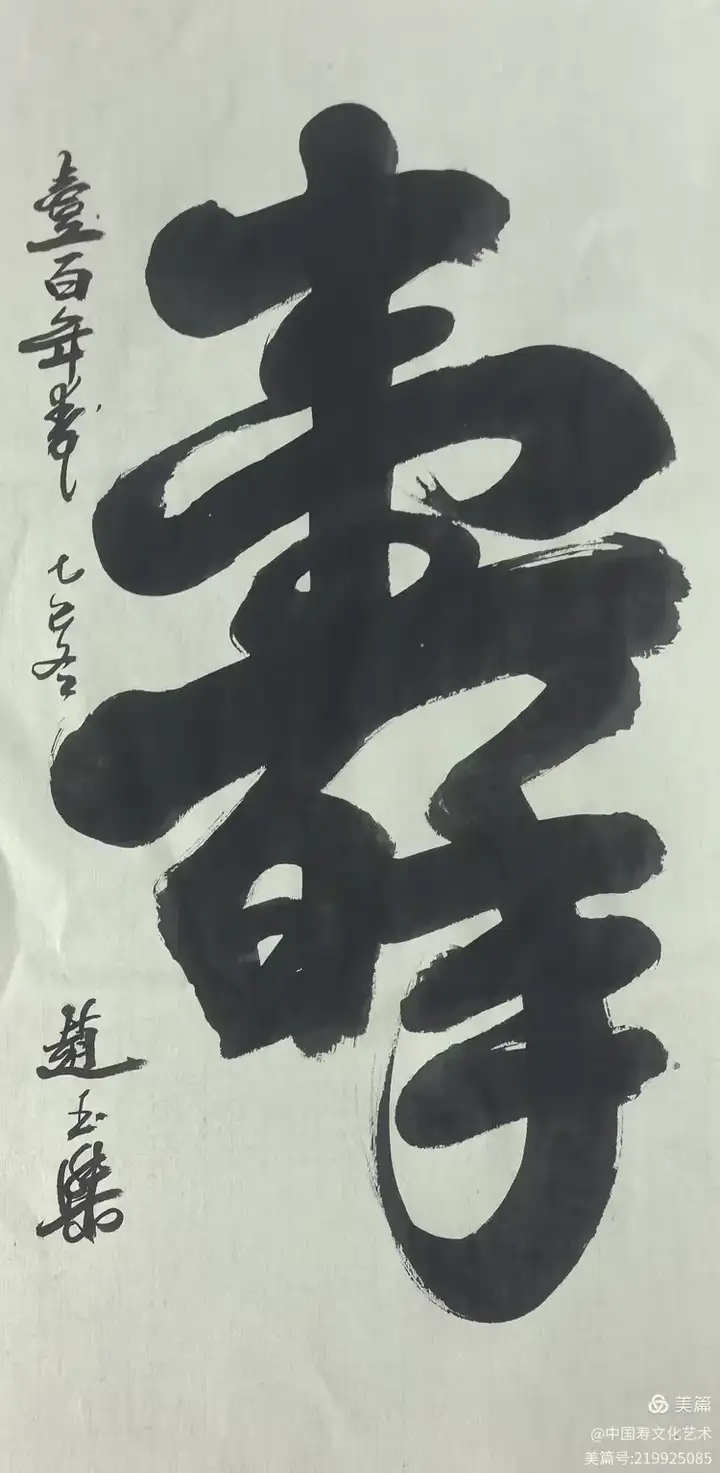 壽
壹百年寿
趙玉樂
美篇
@中国寿文化艺术
美篇号:219925085